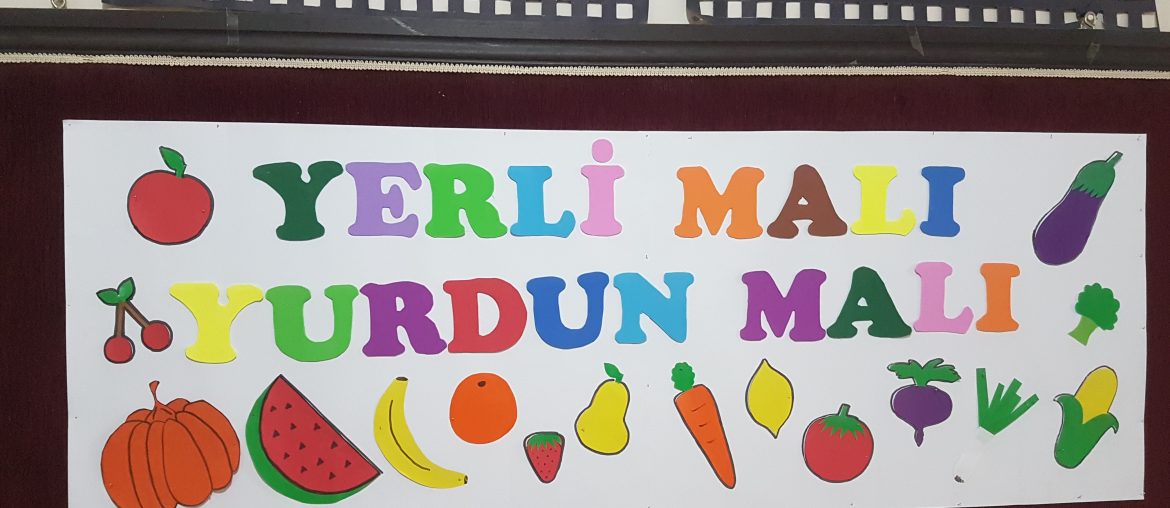 YERLİ MALI
YURDUN MALI